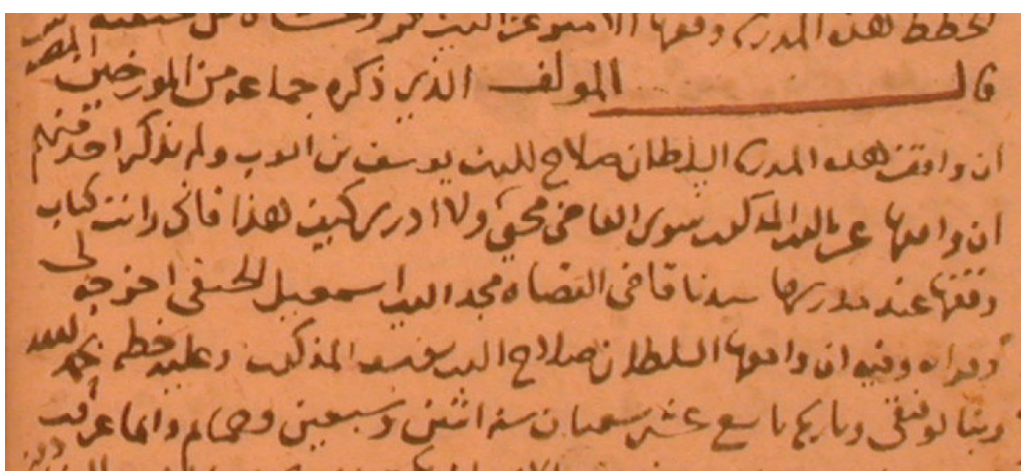 الخطط هذه المدرسة وقفها الامير عز الدين
قال المولف الذي ذكره جماعه من المورخين
ان واقف هذه المدرسه السلطان صلاح الدين يوسف بن ايوب ولم يذكر احد منهم
ان واقفها عز الدين المذكور سوى القاضي محيي ولا ادري كيف هذا فاني رايت كتاب
وقفها عند مدرسها سيدنا قاضي القضاه مجد الدين اسمعيل الحنفي اخرجه لي
وقراته وفيه ان واقفها السلطان صلاح الدين يوسف المذكور وعليه خطه الحمد لله
وبه توفيقي وتاريخه تاسع عشر شعبان سنه اثنتين وسبعين وخمسمايه وانما عرفت